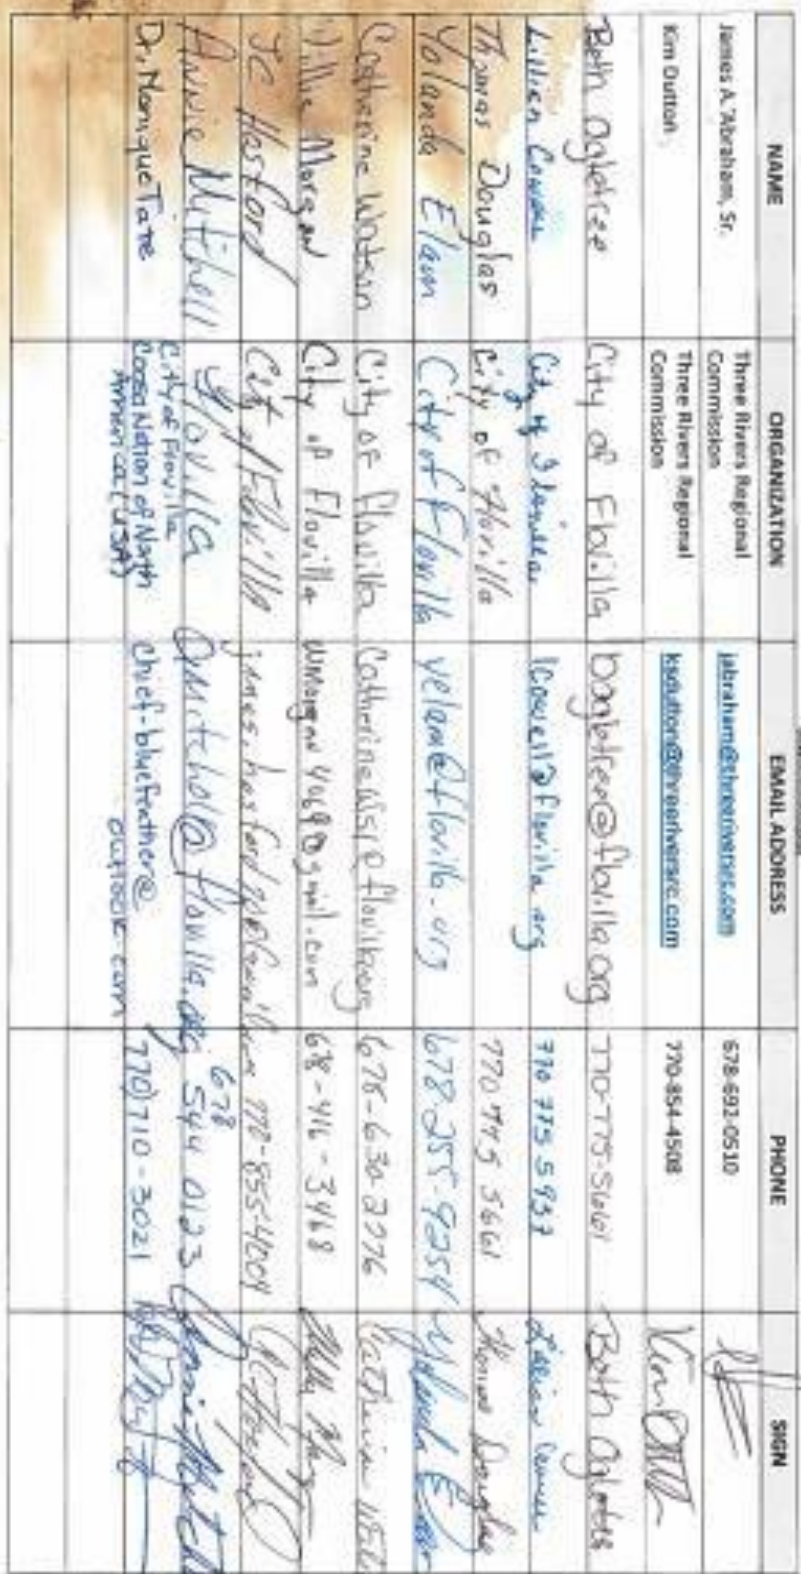 NAME ORGANIZATION EMAIL ADDRESS PHONE SIGN
James A. Abraham, Sr. Three Rivers Regional Commission jabraham@threeriversrc.com 678-692-0510
Kim Dutton Three Rivers Regional Commission ksdutton@threeriversrc.com 770-854-4508 Kim Dutton
Beth Ogletree City of Flovilla bogletree@flovilla.org 770-775-5661 Beth Ogletree
Lillian City of Flovilla lcowell@flovilla.org 770 775 5937 Lillian
Thomas Douglas City of Flovilla 770 775 5661 Thomas Douglas
Yolanda Elam City of Flovilla yelam@flovilla.org 678 255 9254 Yolanda Elam
Catherine Watson City of Flovilla 678-630-2976 Catherine
Willie Morgan City of Flovilla wmorgan4069@gmail.com 678-416-3468
JC Hasford City of Flovilla 770-855-4004
Annie Mitchell Flovilla amitchell@flovilla.org 678 544 0123 Annie Mitchell
Dr. Monique Tate City of Flovilla
Coosa Nation of North America (USA) chief-bluefeather@outlook.com 770)710-3021